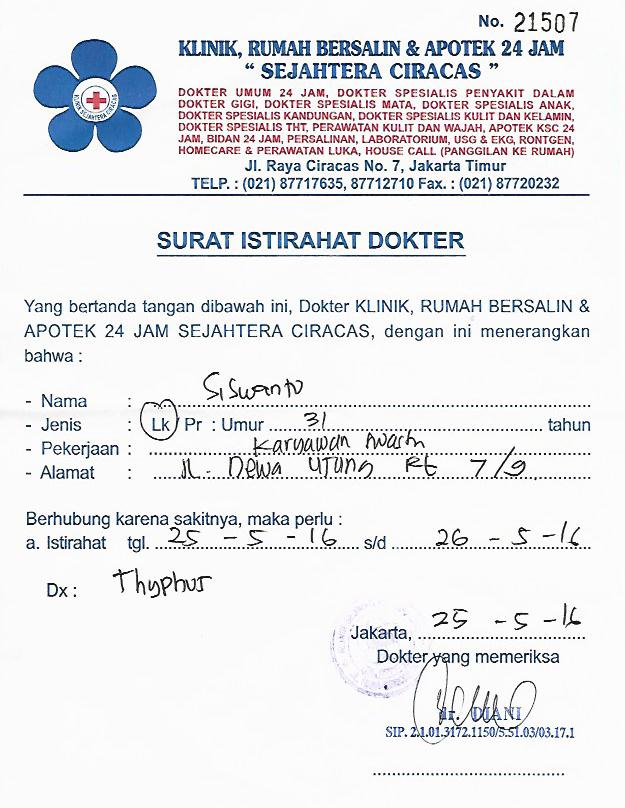 No. 21507
KLINIK, RUMAH BERSALIN & APOTEK 24 JAM
“ SEJAHTERA CIRACAS ”
DOKTER UMUM 24 JAM, DOKTER SPESIALIS PENYAKIT DALAM
DOKTER GIGI, DOKTER SPESIALIS MATA, DOKTER SPESIALIS ANAK,
DOKTER SPESIALIS KANDUNGAN, DOKTER SPESIALIS KULIT DAN KELAMIN,
DOKTER SPESIALIS THT, PERAWATAN KULIT DAN WAJAH, APOTEK KSC 24
JAM, BIDAN 24 JAM, PERSALINAN, LABORATORIUM, USG & EKG, RONTGEN,
HOMECARE & PERAWATAN LUKA, HOUSE CALL (PANGGILAN KE RUMAH)
Jl. Raya Ciracas No. 7, Jakarta Timur
TELP. : (021) 87717635, 87712710 Fax. : (021) 87720232
KLINIK SEJAHTERA CIRACAS
SURAT ISTIRAHAT DOKTER
Yang bertanda tangan dibawah ini, Dokter KLINIK, RUMAH BERSALIN &
APOTEK 24 JAM SEJAHTERA CIRACAS, dengan ini menerangkan
bahwa :
- Nama : Siswanto
- Jenis : Lk / Pr : Umur 31 tahun
- Pekerjaan : Karyawan
- Alamat : Jl. Dewa Ujung Rt 7/9
Berhubung karena sakitnya, maka perlu :
a. Istirahat tgl. 25 - 5 - 16 s/d 26 - 5 - 16
Dx : Thyphus
Jakarta, 25 - 5 - 16
Dokter yang memeriksa
dr. DIANI
SIP. 2.1.01.3172.1150/5.51.03/03.17.1